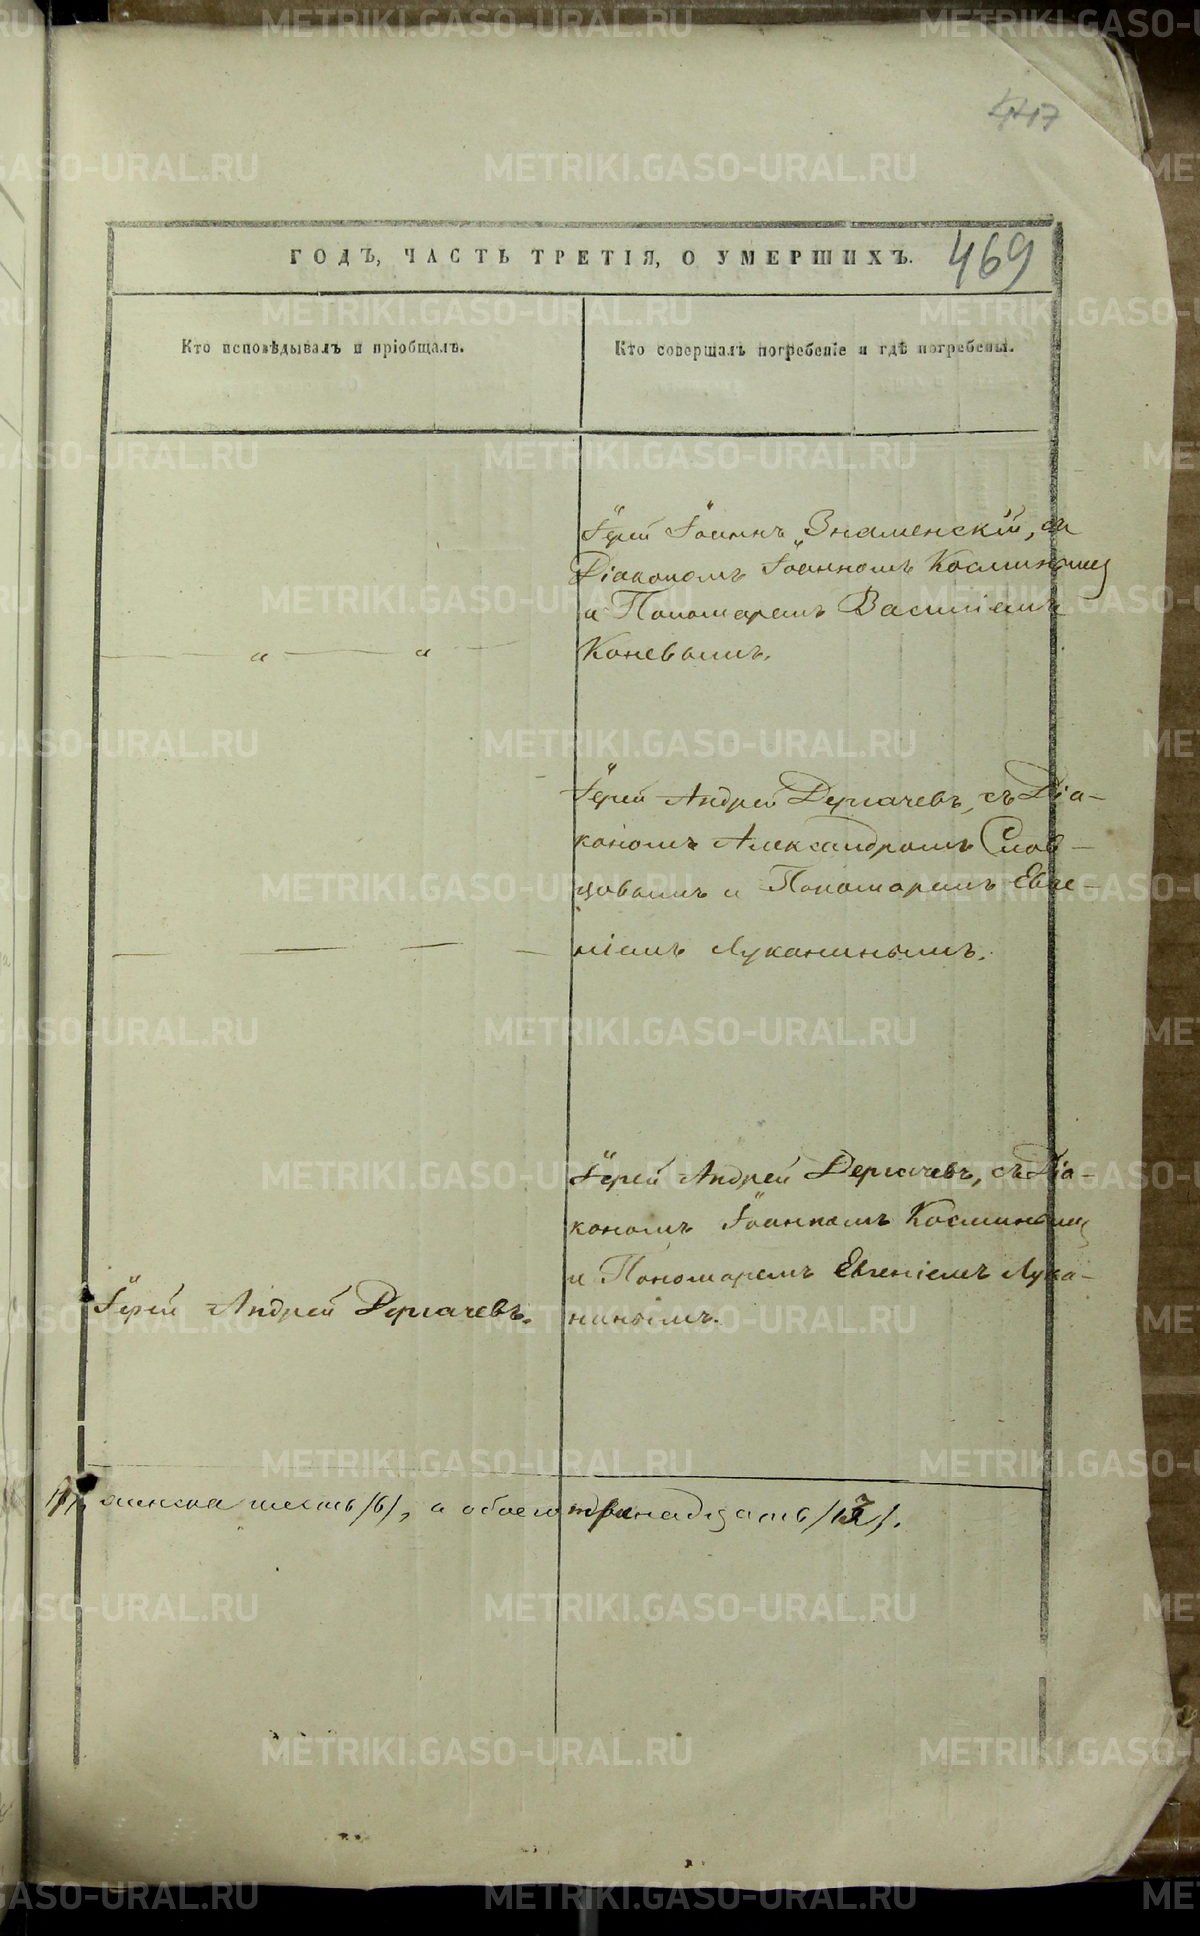 447
ГОДЪ, ЧАСТЬ ТРЕТІЯ, О УМЕРШИХЪ.
469
Кто исповѣдывалъ и пріобщалъ.
Кто совершалъ погребеніе и гдѣ погребены.
Іерей Іоаннъ Знаменскій, съ
Діакономъ Іоанномъ Косминымъ
и Пономаремъ Василіемъ
Коневымъ.
Іерей Андрей Дергачевъ, съ Діа-
кономъ Александромъ Слов-
цовымъ и Пономаремъ Евге-
ніемъ Луканинымъ.
Іерей Андрей Дергачевъ, съ Діа-
кономъ Іоанномъ Косминымъ
и Пономаремъ Евгеніемъ Лука-
нинымъ.
Іерей Андрей Дергачевъ.
женска шесть /6/, а обоего тринадцать /13/.
METRIKI.GASO-URAL.RU